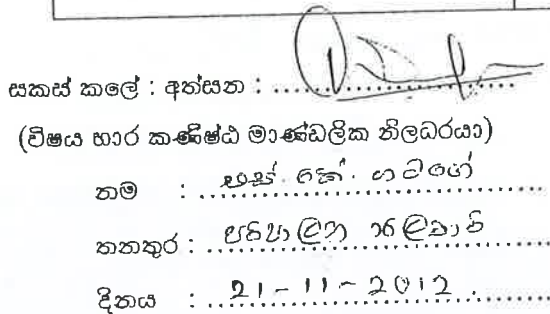 සකස් කලේ : අත්සන : ....................
(විෂය භාර කණිෂ්ඨ මාණ්ඩලික නිලධරයා)
නම : එස්. කේ. ගටගේ
තනතුර : පරිපාලන
දිනය : 21-11-2012